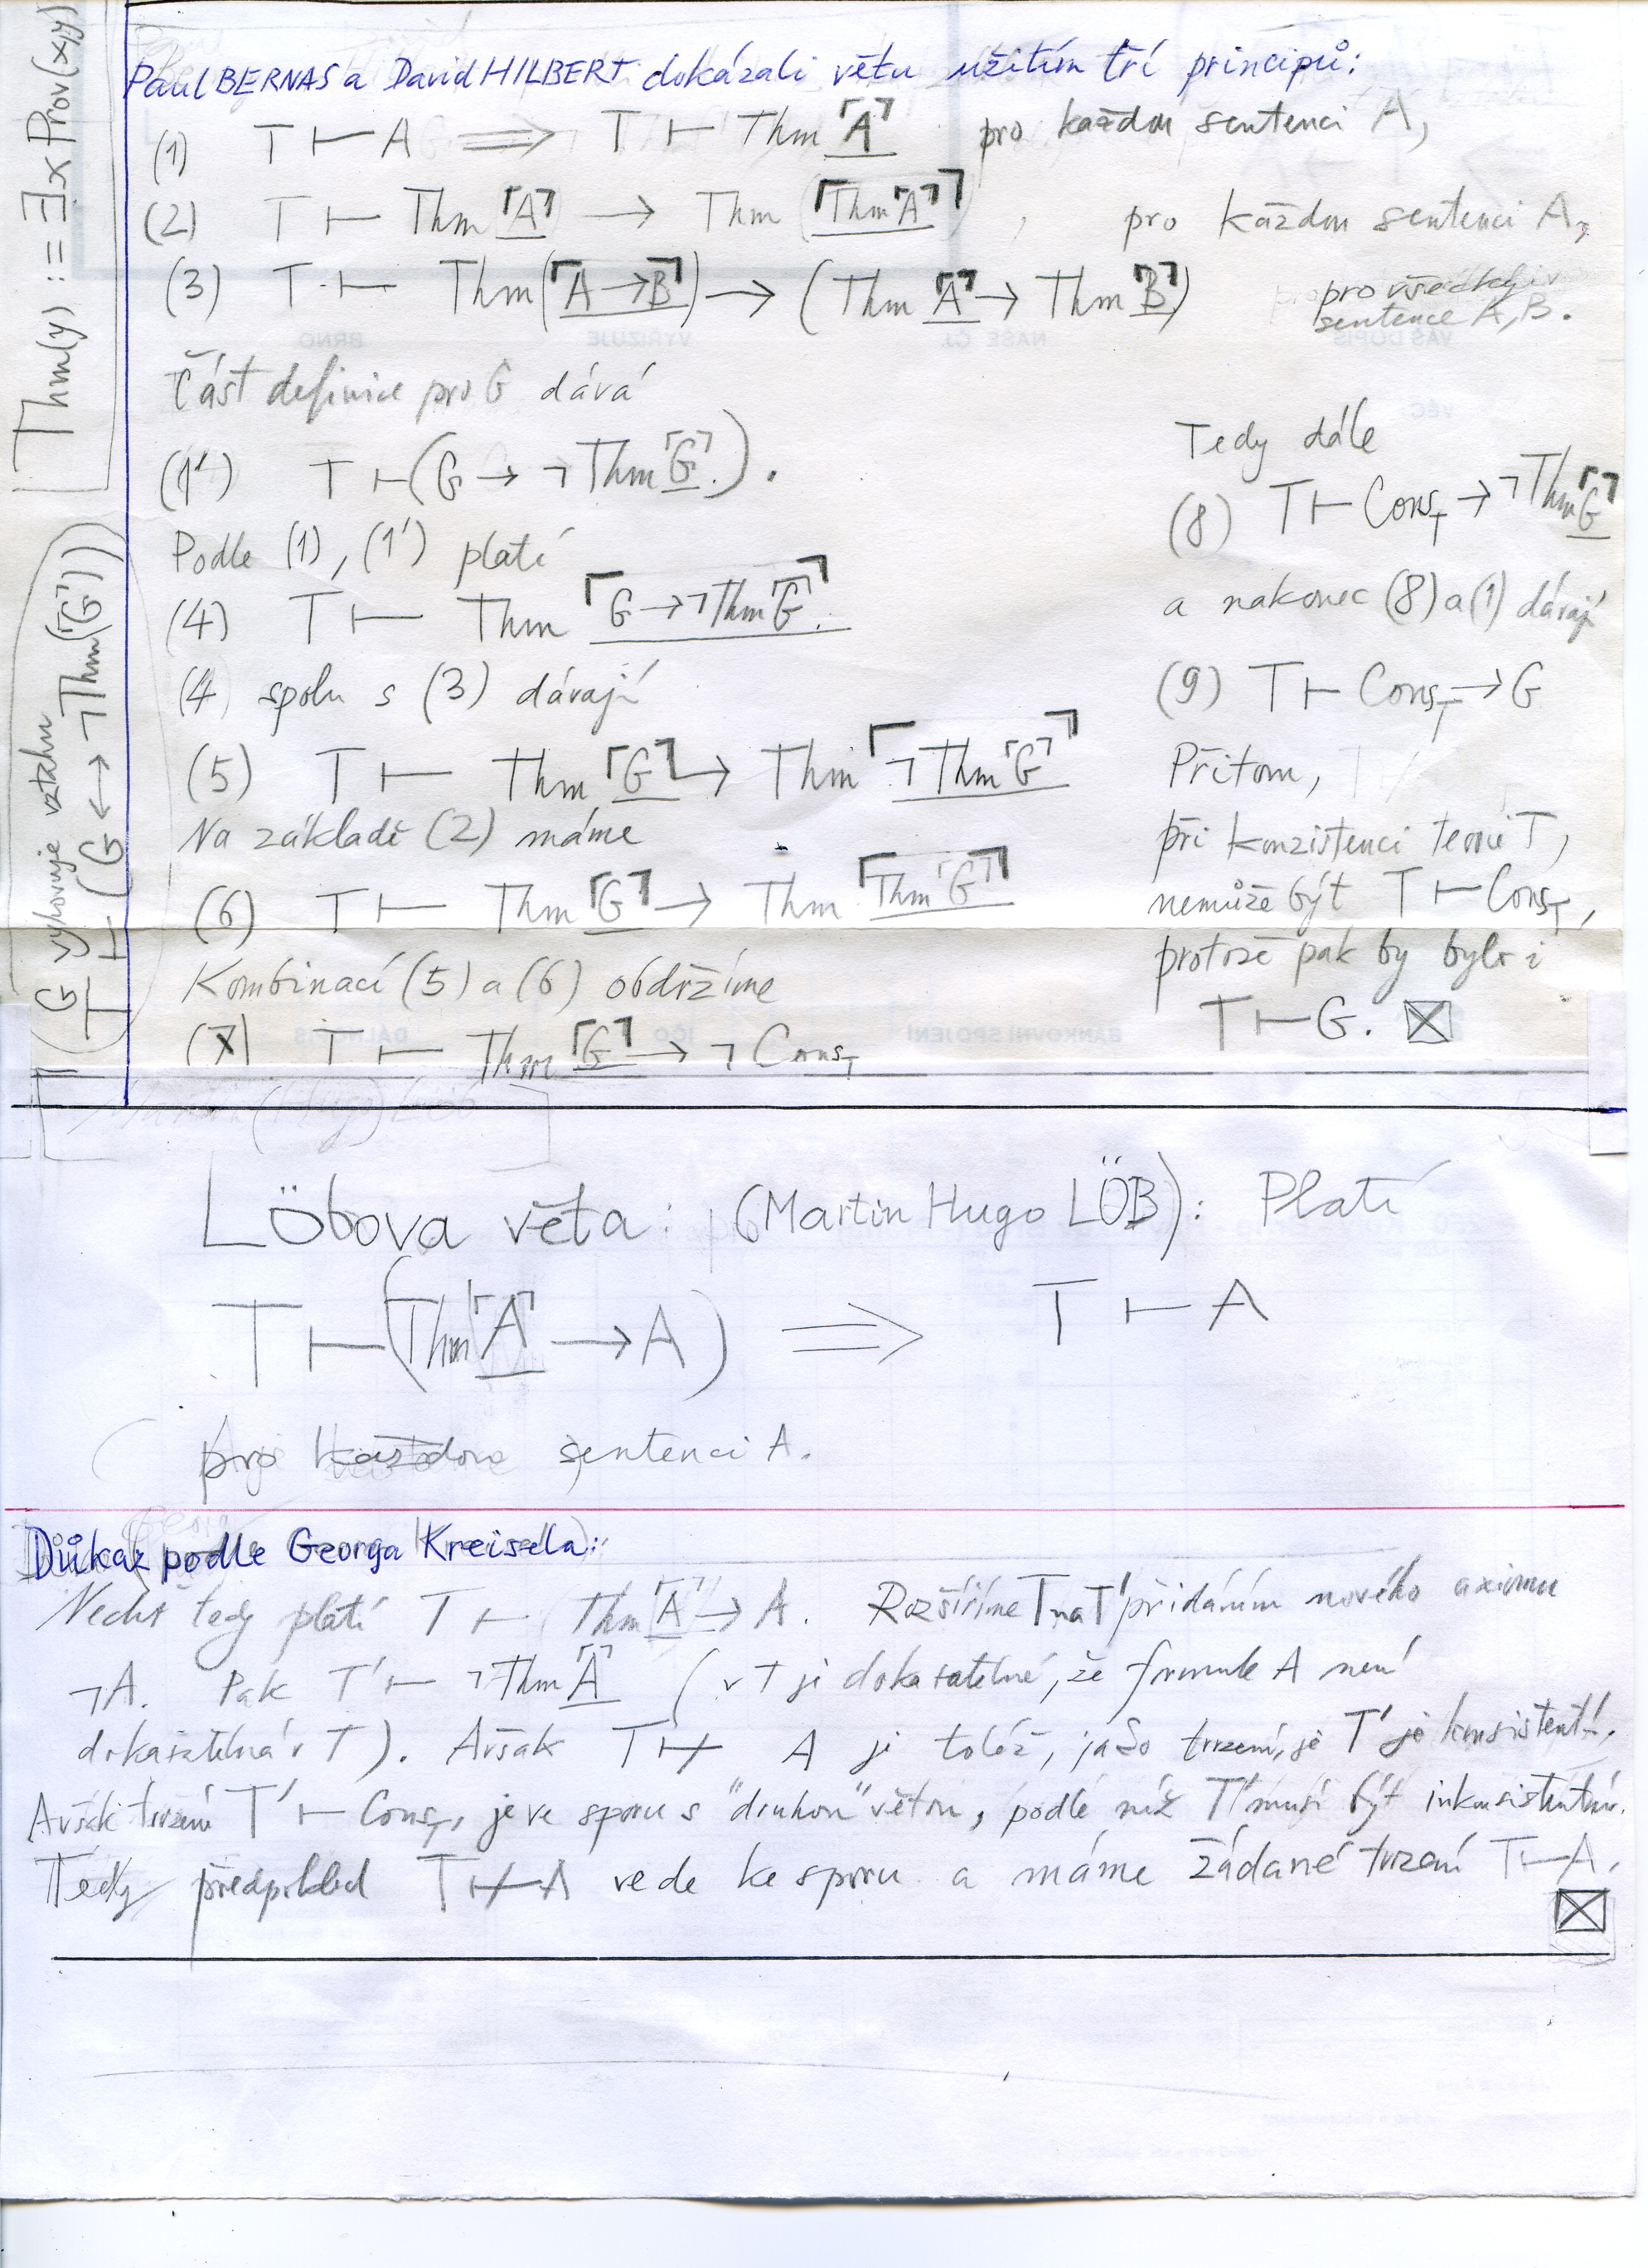 Thm(y) :≡ ∃x Prov(x,y)
(G vyhovuje vztahu
T ⊢ (G ↔ ¬Thm(⌜G⌝)))
Paul BERNAS a David HILBERT dokázali větu užitím tří principů:
(1) T ⊢ A ⟹ T ⊢ Thm ⌜A⌝ pro každou sentenci A,
(2) T ⊢ Thm ⌜A⌝ → Thm (⌜Thm ⌜A⌝⌝), pro každou sentenci A,
(3) T ⊢ Thm(⌜A → B⌝) → (Thm ⌜A⌝ → Thm ⌜B⌝) pro všechny
sentence A, B.
Část definice pro G dává
(1') T ⊢ (G → ¬Thm ⌜G⌝).
Podle (1), (1') platí
(4) T ⊢ Thm ⌜G → ¬Thm ⌜G⌝⌝.
(4) spolu s (3) dávají
(5) T ⊢ Thm ⌜G⌝ → Thm ⌜¬Thm ⌜G⌝⌝
Na základě (2) máme
(6) T ⊢ Thm ⌜G⌝ → Thm ⌜Thm ⌜G⌝⌝
Kombinací (5) a (6) obdržíme
(7) T ⊢ Thm ⌜G⌝ → ¬Cons_T
Tedy dále
(8) T ⊢ Cons_T → ¬Thm ⌜G⌝
a nakonec (8) a (1) dávají
(9) T ⊢ Cons_T → G
Přitom,
při konzistenci teorie T,
nemůže být T ⊢ Cons_T,
protože pak by bylo i
T ⊢ G. ☒
Löbova věta: (Martin Hugo LÖB): Platí
T ⊢ (Thm ⌜A⌝ → A) ⟹ T ⊢ A
pro každou sentenci A.
Důkaz podle Georga Kreisela:
Nechť tedy platí T ⊢ Thm ⌜A⌝ → A. Rozšíříme T na T' přidáním nového axiomu
¬A. Pak T' ⊢ ¬Thm ⌜A⌝ (v T je dokazatelné, že formule A není
dokazatelná v T). Avšak T ⊬ A je totéž, jako tvrzení, že T' je konsistentní.
Avšak tvrzení T' ⊢ Cons_T' je ve sporu s "druhou" větou, podle níž T' musí být inkonsistentní.
Tedy předpoklad T ⊬ A vede ke sporu a máme žádané tvrzení T ⊢ A.
☒